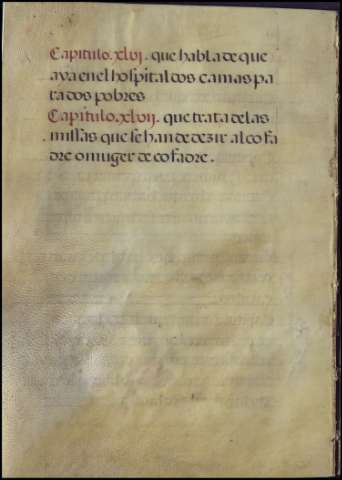 Capitulo .xlvj. que habla de que
aya en el hospital dos camas pa
ra dos pobres
Capitulo .xlvij. que trata de las
missas que se han de dezir al cofa
dre o muger de cofadre .